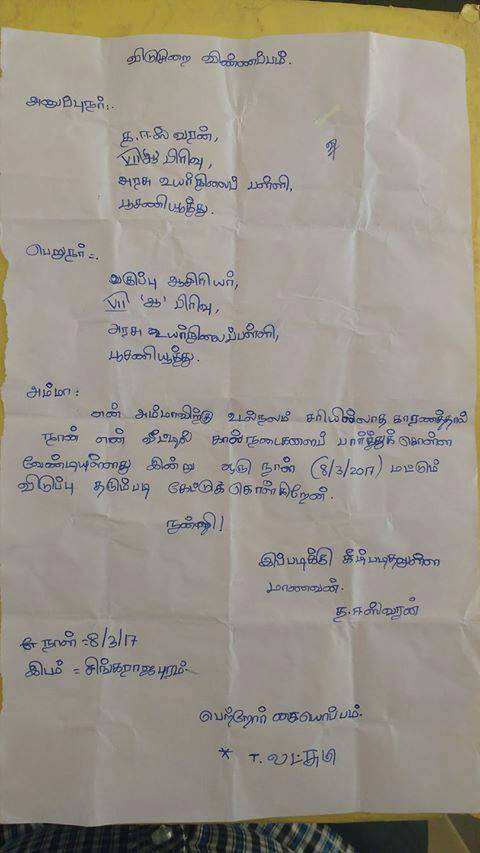 விடுமுறை விண்ணப்பம்.
அனுப்புநர்:-
த.ஈஸ்வரன்,
VII 'ஆ' பிரிவு,
அரசு உயர்நிலைப் பள்ளி,
பூசணியூத்து.
பெறுநர்:-
வகுப்பு ஆசிரியர்,
VII 'ஆ' பிரிவு,
அரசு உயர்நிலைப்பள்ளி,
பூசணியூத்து.
அம்மா:
என் அம்மாவிற்கு உடல்நலம் சரியில்லாத காரணத்தால்
நான் என் வீட்டில் கால்நடைகளைப் பார்த்துக்கொள்ள
வேண்டியுள்ளது இன்று ஒரு நாள் (8/3/2017) மட்டும்
விடுப்பு தரும்படி கேட்டுக்கொள்கிறேன்.
நன்றி!
இப்படிக்கு கீழ்படிதலுள்ள
மாணவன்.
த.ஈஸ்வரன்
நாள் =8/3/17
இடம் = சிங்கராஜபுரம்.
பெற்றோர் கையொப்பம்.
* T. லட்சுமி